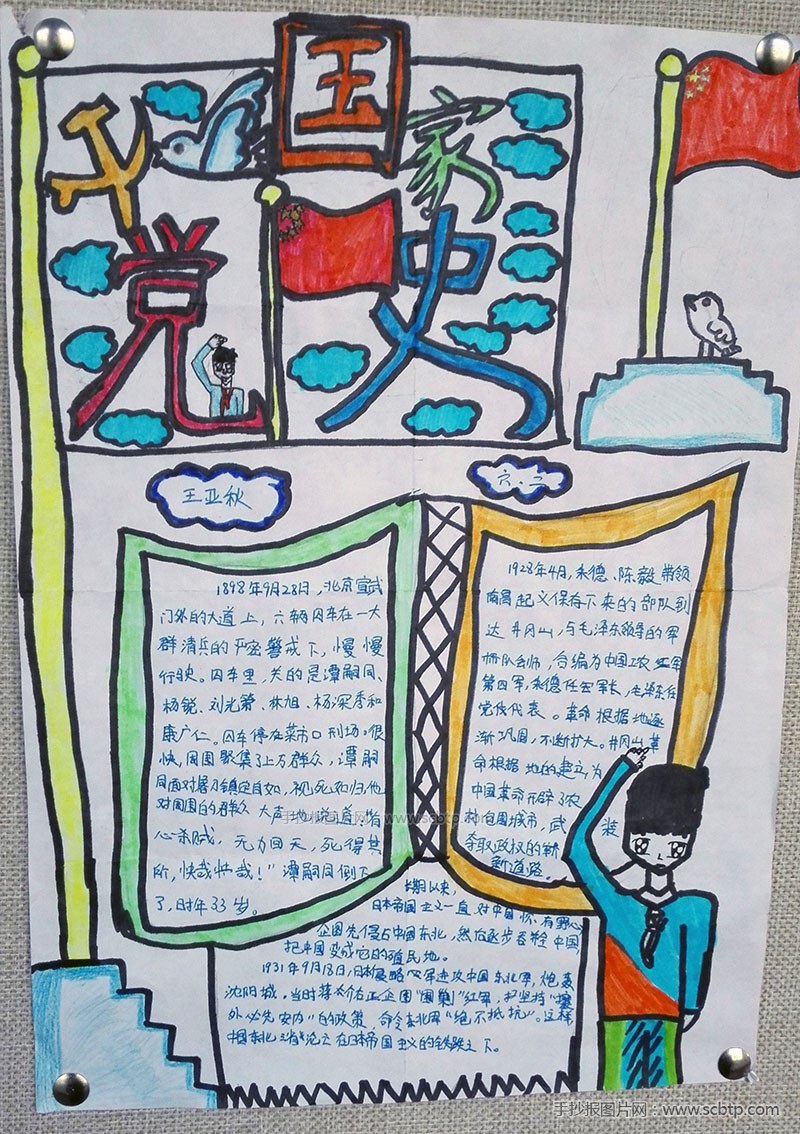 国家
党史
王亚秋
六.二
1898年9月28日,北京宣武
门外的大道上,六辆囚车在一大
群清兵的严密警戒下,慢慢
行驶。囚车里,关的是谭嗣同、
杨锐、刘光第、林旭、杨深秀和
康广仁。囚车停在菜市口刑场。很
快,周围聚集了上万群众,谭嗣
同面对屠刀镇定自如,视死如归,他
对周围的群众大声地说道:"有
心杀贼,无力回天,死得其
所,快哉快哉!"谭嗣同倒下
了,时年33岁。
1928年4月,朱德、陈毅带领
南昌起义保存下来的部队到
达井冈山,与毛泽东领导的军
队会师,合编为中国工农红军
第四军,朱德任军长,毛泽东任
党代表。革命根据地逐
渐巩固,不断扩大。井冈山革
命根据地的建立,为
中国革命开辟了农
村包围城市,武装
夺取政权的崭
新道路。
长期以来,
日本帝国主义一直对中国怀有野心
企图先侵占中国东北,然后逐步吞并全中国,
把中国变成它的殖民地。
1931年9月18日,日本侵略军进攻中国东北军,炮轰
沈阳城,当时蒋介石正企图"围剿"红军,坚持"攘
外必先安内"的政策,命令东北军"绝不抵抗"。这样
中国东北三省沦亡在日本帝国主义的铁蹄之下。
手抄报图片网:www.scbtp.com
手抄报图片网:www.scbtp.com